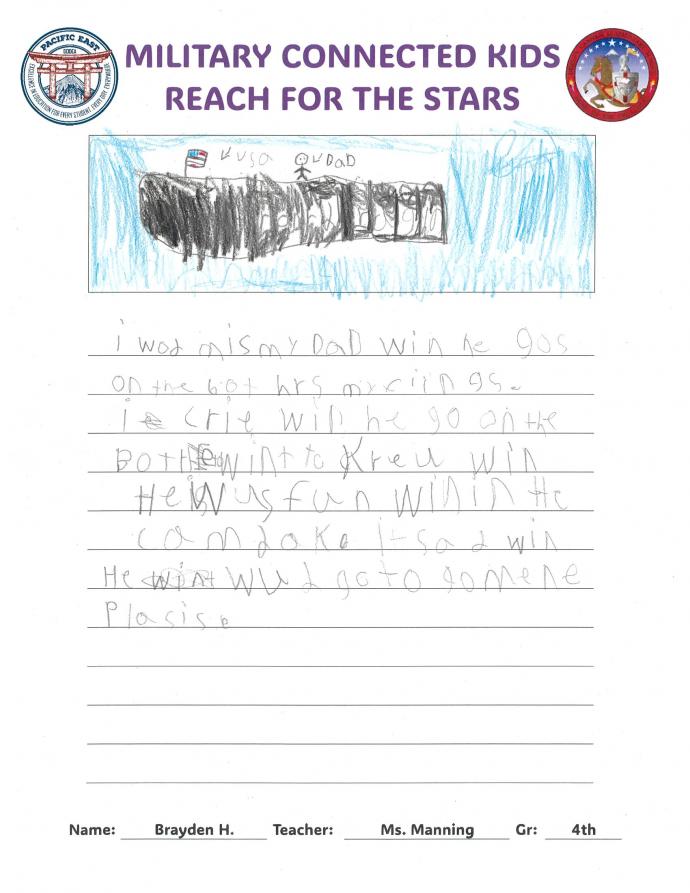 PACIFIC EAST
DODEA
EXCELLENCE IN EDUCATION FOR EVERY STUDENT, EVERY DAY, EVERYWHERE
MILITARY CONNECTED KIDS
REACH FOR THE STARS
USA
DAD
i wod mis my DaD win he gos
on the bot hrs
i crie win he go on the
Bott wint to Kreu win
He Wus fun winin He
sad win
He WUd go to so mene
Plasis.
Name: Brayden H. Teacher: Ms. Manning Gr: 4th